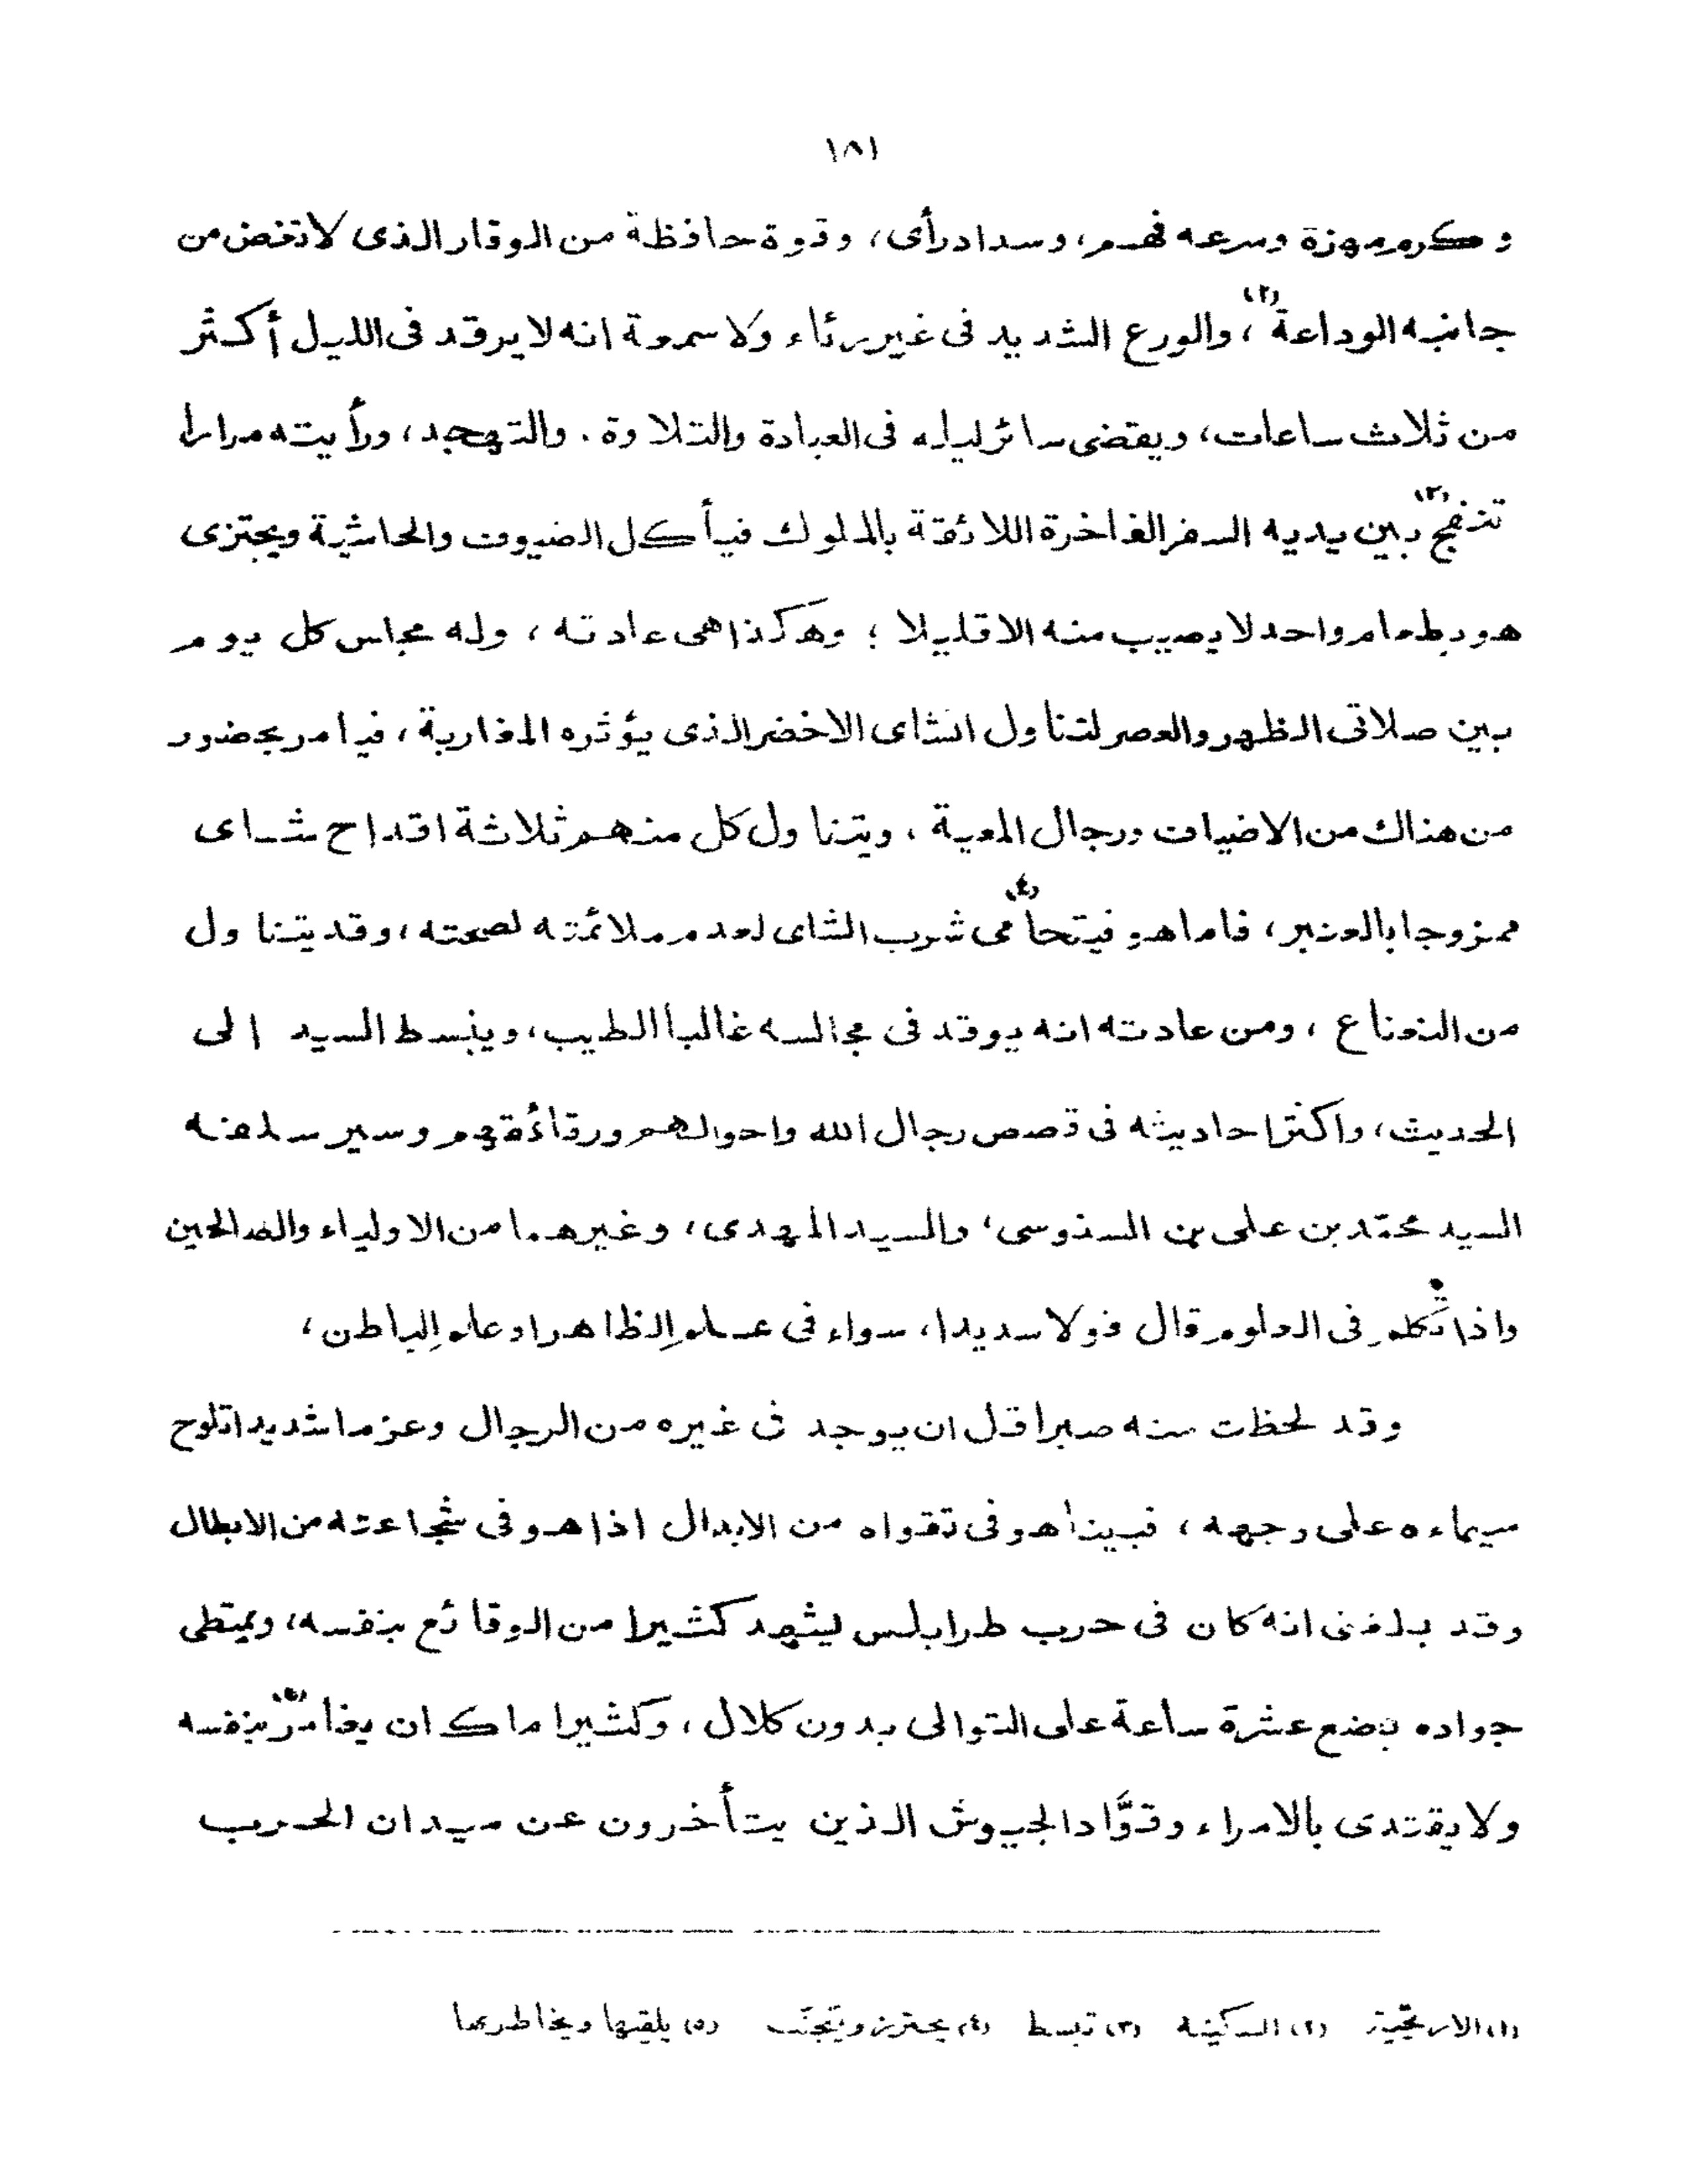 ١٨١
وكرم مهزة وسرعه فهم، وسداد رأى، وقوة حافظة من الوقار الذى لا تخض من
جانبه الوداعة(٢)، والورع الشديد فى غير رئاء ولا سمعة انه لا يرقد فى الليل أكثر
من ثلاث ساعات، ويقضى سائر ليله فى العبادة والتلاوة . والتهجد، ورأيته مرارا
تنفج(٣) بين يديه السفر الفاخرة اللائقة بالملوك فيأكل الضيوف والحاشية ويجتزى
هو بطعام واحد لا يصيب منه الا قليلا ؛ وهكذا هى عادته ، وله مجلس كل يوم
بين صلاتى الظهر والعصر لتناول الشاى الاخضر الذى يؤثره المغاربة ، فيامر بحضور
من هناك من الاضياف ورجال المعية ، ويتناول كل منهم ثلاثة اقداح شاى
ممزوجا بالعنبر، فاما هو فيتحامى(٤) شرب الشاى لعدم ملائمته لصحته، وقد يتناول
من النعناع ، ومن عادته انه يوقد فى مجالسه غالبا الطيب، وينبسط السيد الى
الحديث، واكثر احاديثه فى قصص رجال الله واحوالهم ورقائقهم وسير سلفه
السيد محمّد بن على بن السنوسى، والسيد المهدى، وغيرهما من الاولياء والصالحين
واذا تكلم فى العلوم قال قولا سديدا، سواء فى علم الظاهر او علم الباطن ،
وقد لحظت منه صبرا قل ان يوجد فى غيره من الرجال وعزما شديدا تلوح
سيماءه على وجهه ، فبينا هو فى تقواه من الابدال اذا هو فى شجاعته من الابطال
وقد بلغنى انه كان فى حرب طرابلس يشهد كثيرا من الوقائع بنفسه، ويمتطى
جواده بضع عشرة ساعة على التوالى بدون كلال ، وكثيرا ما كان يغامر(٥) بنفسه
ولا يقتدى بالامراء وقوَّاد الجيوش الذين يتأخرون عن ميدان الحرب
(١) الاريحيّة (٢) السكينه (٣) تبسط (٤) يحترز ويتجنّب (٥) يلقيها ويخاطر بها